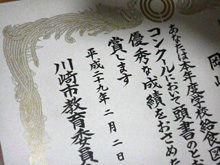 岡
あなたは本年度学校給食
コンクールにおいて頭書のと
優秀な成績をおさめ
賞します
平成二十九年二月二日
川崎市教育委員